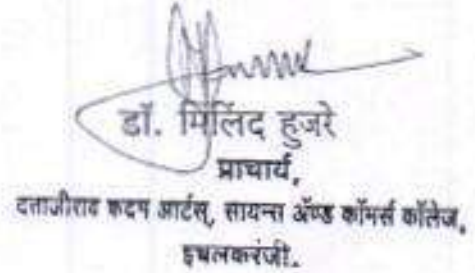 डॉ. मिलिंद हुजरे
प्राचार्य,
दत्ताजीराव कदम आर्टस्, सायन्स ॲण्ड कॉमर्स कॉलेज,
इचलकरंजी.